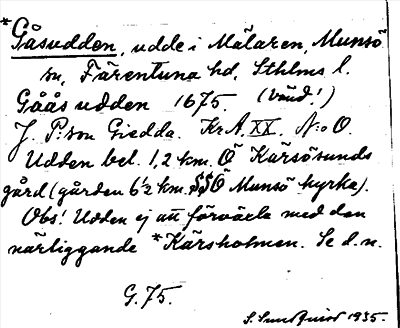 *Gåsudden, udde i Mälaren, Munsö
sn, Färentuna hd, Sthlms l.
Gåås udden 1675. (vund!)
J. P:son Giedda. Kr.A. XX. N:o O.
Udden bel. 1,2 km. Ö Kärsösunds
gård (gården 6½ km. SSÖ Munsö kyrka).
Obs! Udden ej att förväxla med den
närliggande *Kärsholmen. Se d.n.
G. 75.
S. Sundquist 1935.